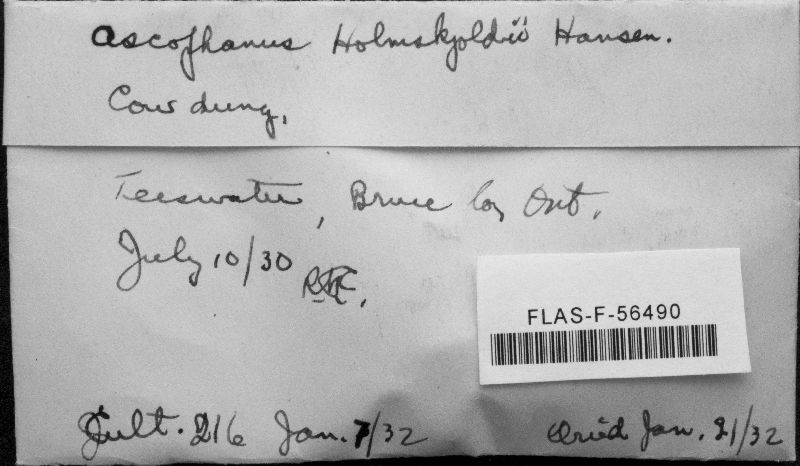 Ascophanus Holmskjoldii Hansen.
Cow dung,
Teeswater, Bruce Co, Ont.
July 10/30
FLAS-F-56490
Cult. 216 Jan. 7/32
Dried Jan. 21/32